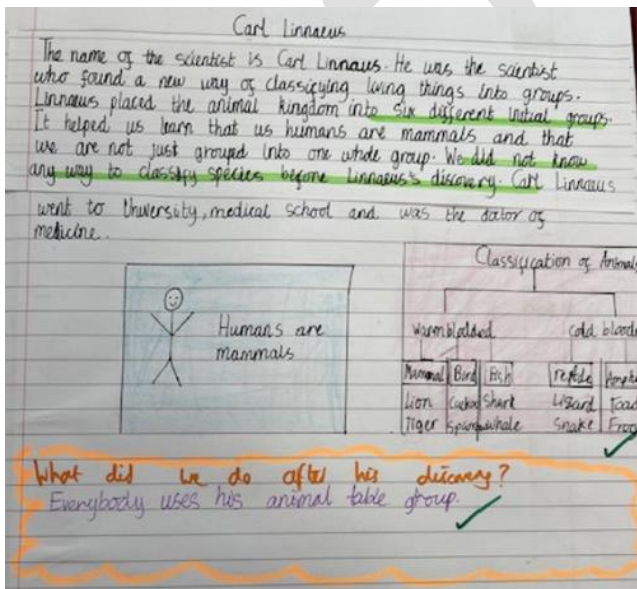 Carl Linnaeus
The name of the scientist is Carl Linnaus. He was the scientist
who found a new way of classifying living things into groups.
Linnaeus placed the animal kingdom into six different initial groups.
It helped us learn that us humans are mammals and that
we are not just grouped into one whole group. We did not know
any way to classify species before Linnaeus's discovery. Carl Linnaeus
went to University, medical school and was the doctor of
medicine.
Humans are
mammals
Classification of Animals
warmblodded Cold bloode
Mammal Bird Fish reptile Amph
Lion Cuckoo Shark Lizard Toad
Tiger whale Snake Frog
What did we do after his discovery?
Everybody uses his animal table group.